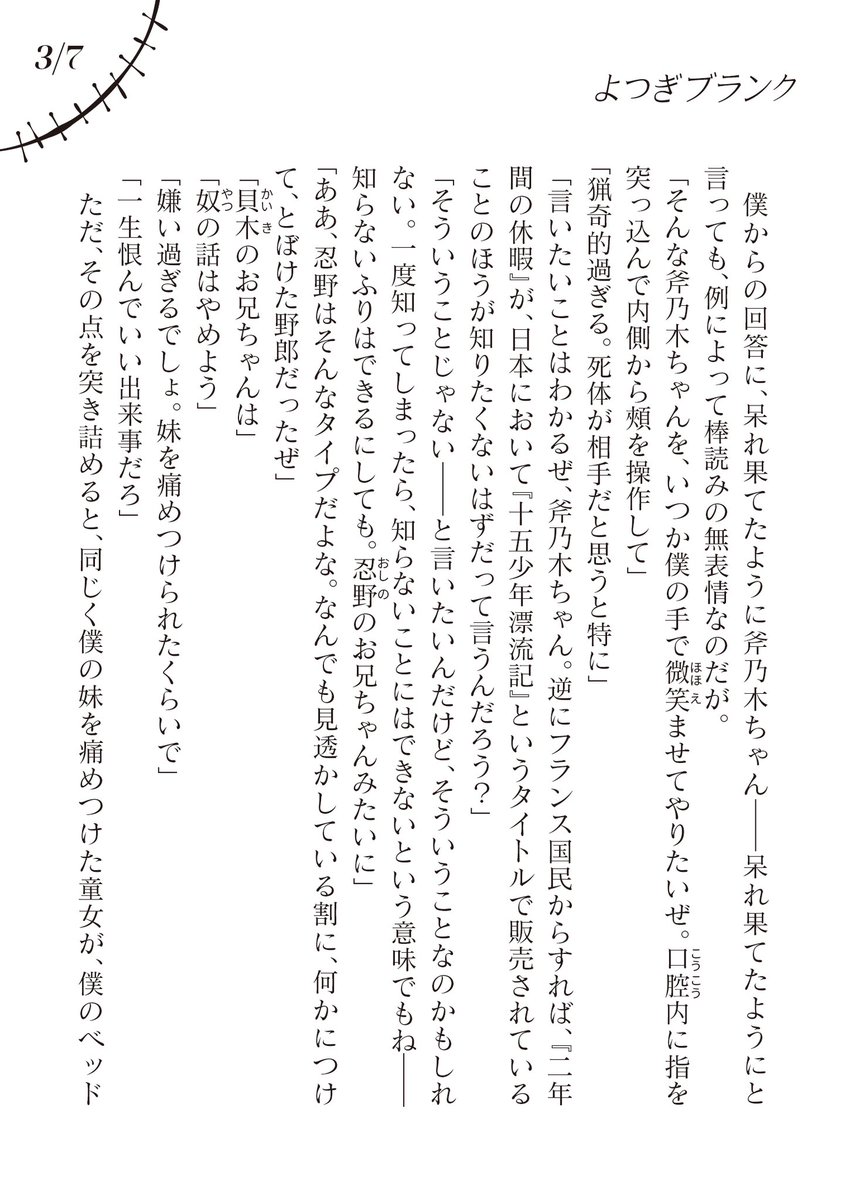 3/7
よつぎブランク
僕からの回答に、呆れ果てたように斧乃木ちゃん――呆れ果てたようにと
言っても、例によって棒読みの無表情なのだが。
「そんな斧乃木ちゃんを、いつか僕の手で微笑ませてやりたいぜ。口腔内に指を
突っ込んで内側から頰を操作して」
「猟奇的過ぎる。死体が相手だと思うと特に」
「言いたいことはわかるぜ、斧乃木ちゃん。逆にフランス国民からすれば、『二年
間の休暇』が、日本において『十五少年漂流記』というタイトルで販売されている
ことのほうが知りたくないはずだって言うんだろう？」
「そういうことじゃない――と言いたいんだけど、そういうことなのかもしれ
ない。一度知ってしまったら、知らないことにはできないという意味でもね――
知らないふりはできるにしても。忍野のお兄ちゃんみたいに」
「ああ、忍野はそんなタイプだよな。なんでも見透かしている割に、何かにつけ
て、とぼけた野郎だったぜ」
「貝木のお兄ちゃんは」
「奴の話はやめよう」
「嫌い過ぎるでしょ。妹を痛めつけられたくらいで」
「一生恨んでいい出来事だろ」
ただ、その点を突き詰めると、同じく僕の妹を痛めつけた童女が、僕のベッド